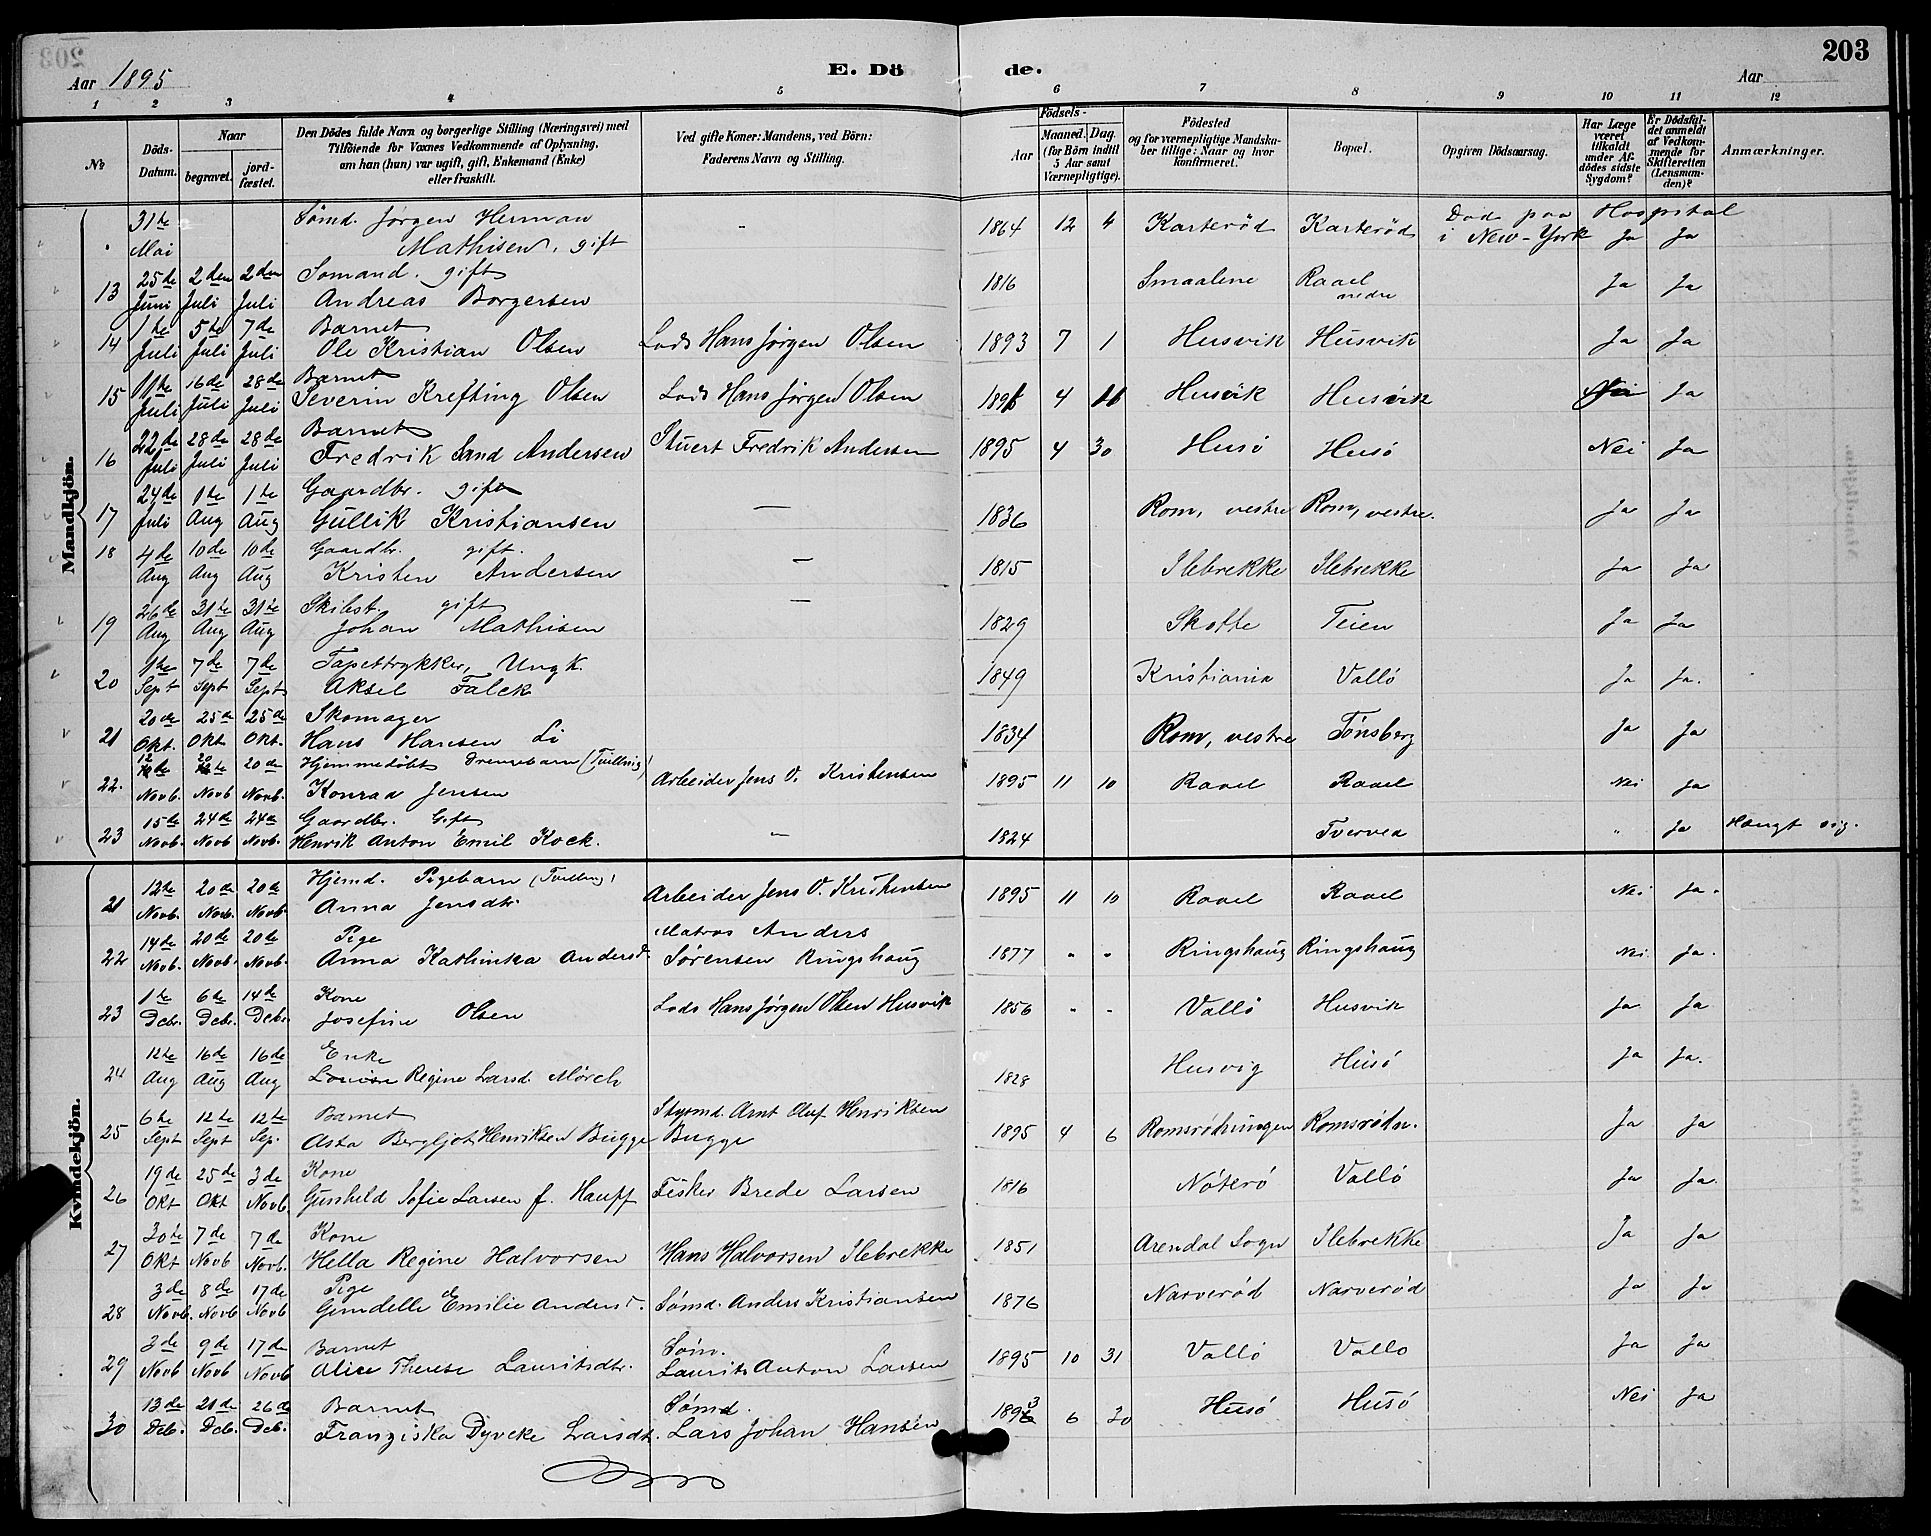 203
Aar 1895
E. Döde.
Aar
1 2 3 4 5 6 7 8 9 10 11 12
№
Döds-Datum.
Naar
begravet.
jord-fæstet.
Den Dödes fulde Navn og borgerlige Stilling (Næringsvei) med
Tilföiende for Voxnes Vedkommende af Oplysning,
om han (hun) var ugift, gift, Enkemand (Enke)
eller fraskilt.
Ved gifte Koner: Mandens, ved Börn:
Faderens Navn og Stilling.
Födsels-
Aar
Maaned. Dag.
(for Börn indtil
5 Aar samt
Værnepligtige).
Födested
og for værnepligtige Mandska-
ber tillige: Naar og hvor
konfirmeret.
Bopæl.
Opgiven Dödsaarsag.
Har Læge
været
tilkaldt
under Af-
dödes sidste
Sygdom?
Er Dödsfal-
det anmeldt
af Vedkom-
mende for
Skifteretten
(Lensman-
den)?
Anmærkninger.
Mandkjön.
31te Mai Sømd. Jørgen Herman Mathisen, gift - 1864 12 4 Karterød Karterød Død paa Hospital i New-York Ja Ja
13 25de Juni 2den Juli 2den Juli Sømand. gift Andreas Borgersen 1816 Smaalene Raael nedre Ja Ja
14 1te Juli 5te Juli 7de Juli Barnet Ole Kristian Olsen Lods Hans Jørgen Olsen 1893 7 1 Husvik Husvik Ja Ja
15 11te Juli 16de Juli 28de Juli Barnet Severin Krefting Olsen Lods Hans Jørgen Olsen 4 Husvik Husvik Nei Ja
16 22de Juli 28de Juli 28de Juli Barnet Fredrik Sand Andersen Stuert Fredrik Andersen 1895 4 30 Husö Husö Nei Ja
17 24de Juli 1te Aug 1te Aug Gaardbr. gift Gullik Kristiansen — 1836 Rom, vestre Rom, vestre. Ja Ja
18 4de Aug 10de Aug 10de Aug Gaardbr. gift. Kristen Andersen — 1815 Ilebrekke Ilebrekke Ja Ja
19 26de Aug 31te Aug 31te Aug Skibst. gift Johan Mathisen — 1829 Skotte Teien Ja Ja
20 1te Sept 7de Sept 7de Sept Tapettrykker, Ungk. Aksel Falck 1849 Kristiania Vallö Ja Ja.
21 20de Okt. 25de Okt 25de Okt. Skomager Hans Hansen Li 1834 Rom, vestre Tønsberg Ja Ja
22. 12 de Novb. 20 te Novb 20de Novb. Hjemmedøbt Drengebarn (Tvilling) Konrad Jensen Arbeider Jens O. Kristensen 1895 11 10 Raael Raael Nei Ja
23 15de Novb. 24de Novb 24de Novb. Gaardbr. Gift Henrik Anton Emil Kock. " 1824 Tverved " Ja Hængt sig.
Kvindekjön.
21 12te Novb. 20de Novb. 20de Novb. Hjemd. Pigebarn (Tvilling) Anna Jensdtr. Arbeider Jens O. Kristensen 1895 11 10 Raael Raael Nei Ja.
22 14de Novb. 20de Novb. 20de Novb. Pige Anna Kathinka Andersd. Matros Anders Sørensen Ringshaug 1877 " " Ringshaug Ringshaug Nei. Ja.
23 1te Debr. 6te Debr. 14de Debr. Kone Josefine Olsen Lods Hans Jørgen Olsen Husvik 1856 - - Vallö Husvik Ja Ja
24 12te Aug 16de Aug 16de Aug Enke Lovise Regine Larsd. Mörch 1828 Husvig Husö Ja Ja.
25 6te Sept 12te Sept 12te Sep. Barnet Asta Bergljot Henriksen Bugge Styrmd. Arnt Oluf Henriksen Bugge 1895 4 6 Romsrödningen Romsrödn. Ja Ja
26 19de Okt 25de Okt 3de Novb. Kone Gunhild Sofie Larsen f. Hauff Fisker Brede Larsen 1816 Nöterö Vallö Ja Ja.
27 30te Okt 7de Novb 7de Novb. Kone Hella Regine Halvorsen Hans Halvorsen Ilebrekke 1851 Arendal Sogn Ilebrekke Ja Ja
28 3de Novb. 8de Novb 17de Novb Pige Gundelle Emilie Andersd. Sømd. Anders Kristiansen 1876 Narveröd Narveröd Ja Ja
29 3de Novb 9de Novb 17de Novb Barnet Alice Therese Lauritsdtr. Søm. Laurits Anton Larsen 1895 10 31 Vallö Vallö Ja Ja
30 13de Deb. 21de Deb. 26de Deb. Barnet Franziska Dyveke Larsdt. Sømd. Lars Johan Hansen 1893 6 30 Husö Husö Nei Ja